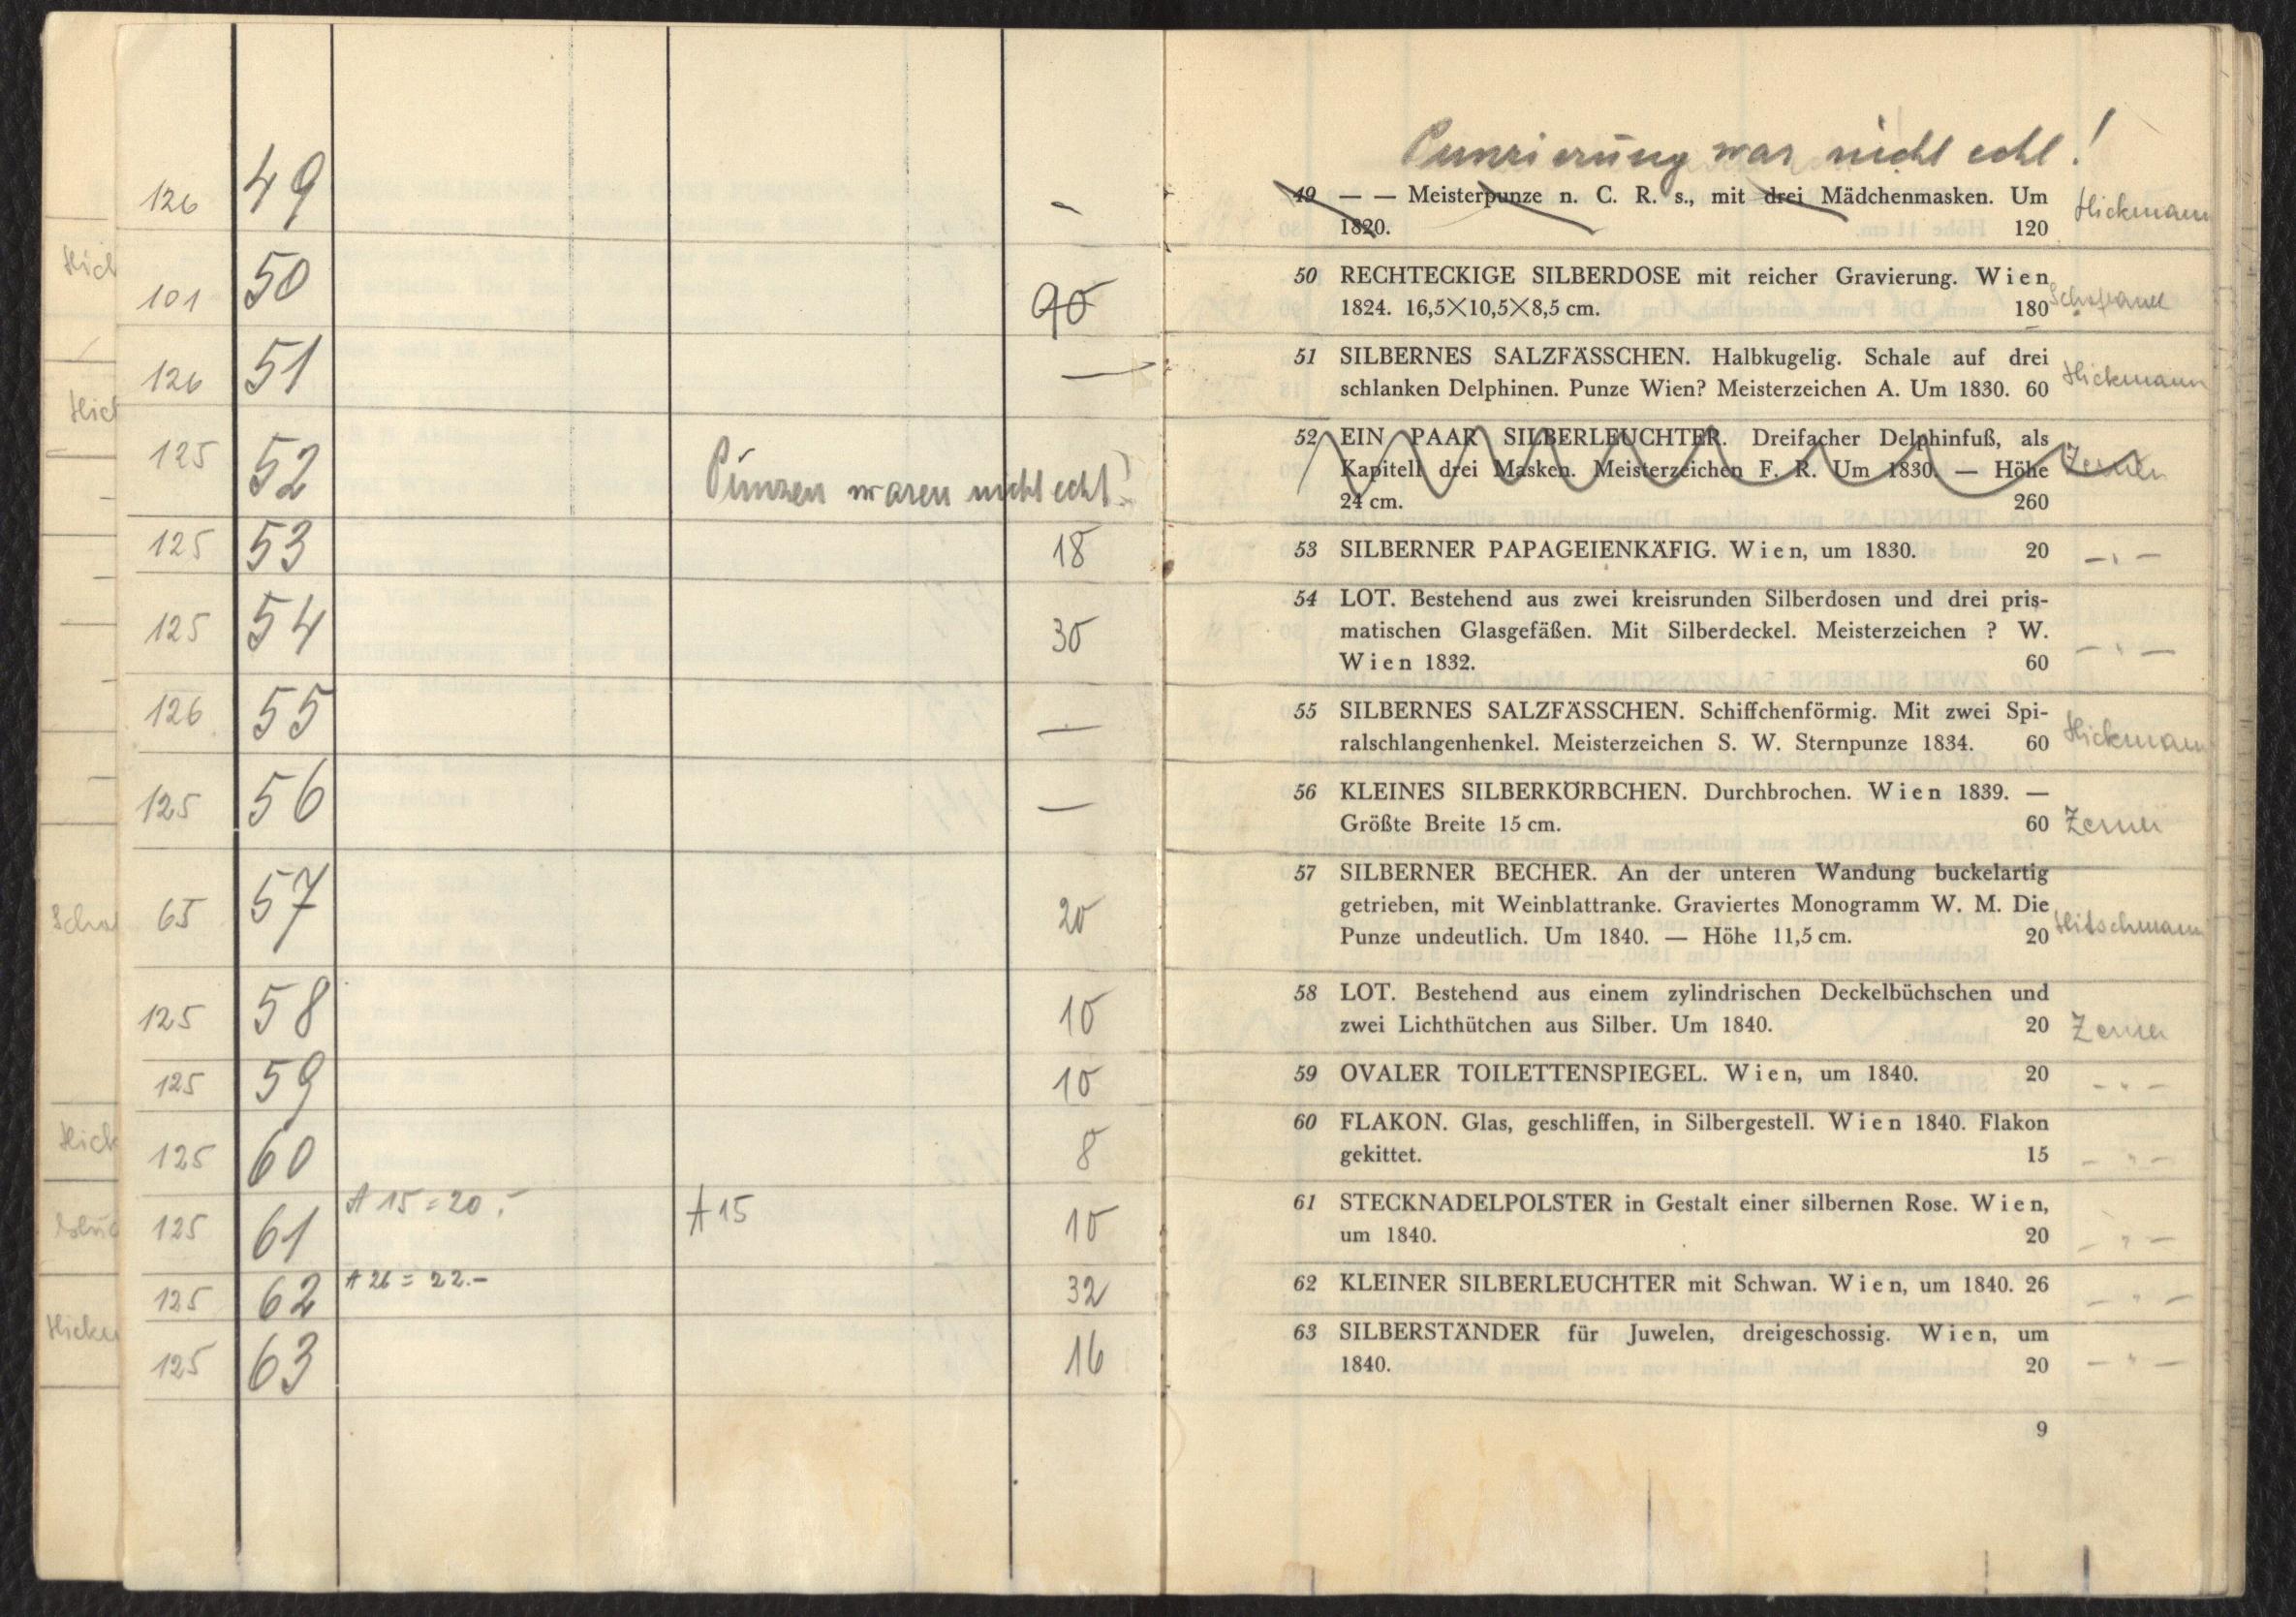 126 49 –
101 50 90
126 51 —
125 52 Punzen waren nicht echt!
125 53 18
125 54 30
126 55 —
125 56 —
65 57 20
125 58 10
125 59 10
125 60 8
125 61 A 15 = 20.- A 15 10
125 62 A 26 = 22.- 32
125 63 16
Hick
Hick
Hick
Hicku
Punzierung war nicht echt!
49 — — Meisterpunze n. C. R. s., mit drei Mädchenmasken. Um
1820. 120
Hickmann
50 RECHTECKIGE SILBERDOSE mit reicher Gravierung. Wien
1824. 16,5×10,5×8,5 cm. 180
51 SILBERNES SALZFÄSSCHEN. Halbkugelig. Schale auf drei
schlanken Delphinen. Punze Wien? Meisterzeichen A. Um 1830. 60
Hickmann
52 EIN PAAR SILBERLEUCHTER. Dreifacher Delphinfuß, als
Kapitell drei Masken. Meisterzeichen F. R. Um 1830. — Höhe
24 cm. 260
Zerner
53 SILBERNER PAPAGEIENKÄFIG. Wien, um 1830. 20 – " –
54 LOT. Bestehend aus zwei kreisrunden Silberdosen und drei pris-
matischen Glasgefäßen. Mit Silberdeckel. Meisterzeichen ? W.
Wien 1832. 60 – " –
55 SILBERNES SALZFÄSSCHEN. Schiffchenförmig. Mit zwei Spi-
ralschlangenhenkel. Meisterzeichen S. W. Sternpunze 1834. 60
Hickmann
56 KLEINES SILBERKÖRBCHEN. Durchbrochen. Wien 1839. —
Größte Breite 15 cm. 60 Zerner
57 SILBERNER BECHER. An der unteren Wandung buckelartig
getrieben, mit Weinblattranke. Graviertes Monogramm W. M. Die
Punze undeutlich. Um 1840. — Höhe 11,5 cm. 20
Hitschmann
58 LOT. Bestehend aus einem zylindrischen Deckelbüchschen und
zwei Lichthütchen aus Silber. Um 1840. 20 Zerner
59 OVALER TOILETTENSPIEGEL. Wien, um 1840. 20 – " –
60 FLAKON. Glas, geschliffen, in Silbergestell. Wien 1840. Flakon
gekittet. 15 – " –
61 STECKNADELPOLSTER in Gestalt einer silbernen Rose. Wien,
um 1840. 20 – " –
62 KLEINER SILBERLEUCHTER mit Schwan. Wien, um 1840. 26 – " –
63 SILBERSTÄNDER für Juwelen, dreigeschossig. Wien, um
1840. 20 – " –
9